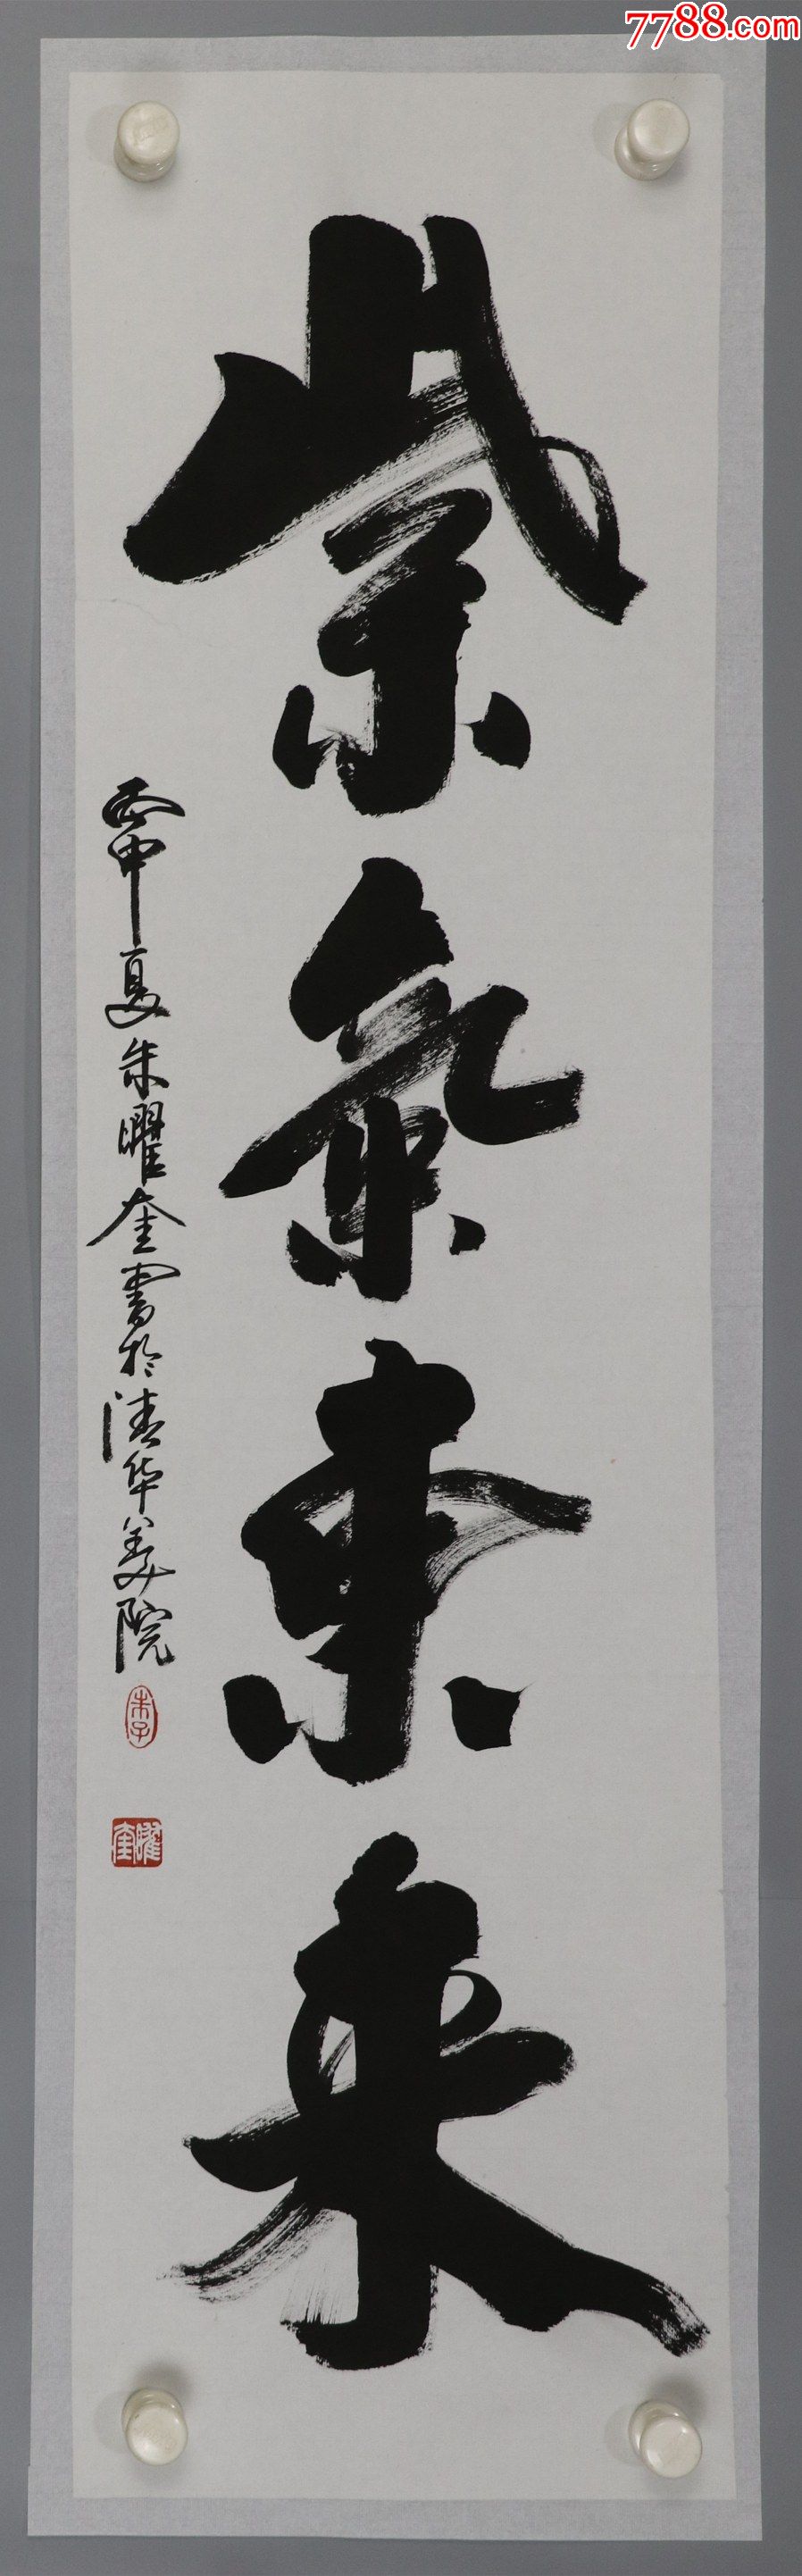 7788.com
紫氣東来
丙申夏朱曜奎書於清华美院
朱子
曜奎